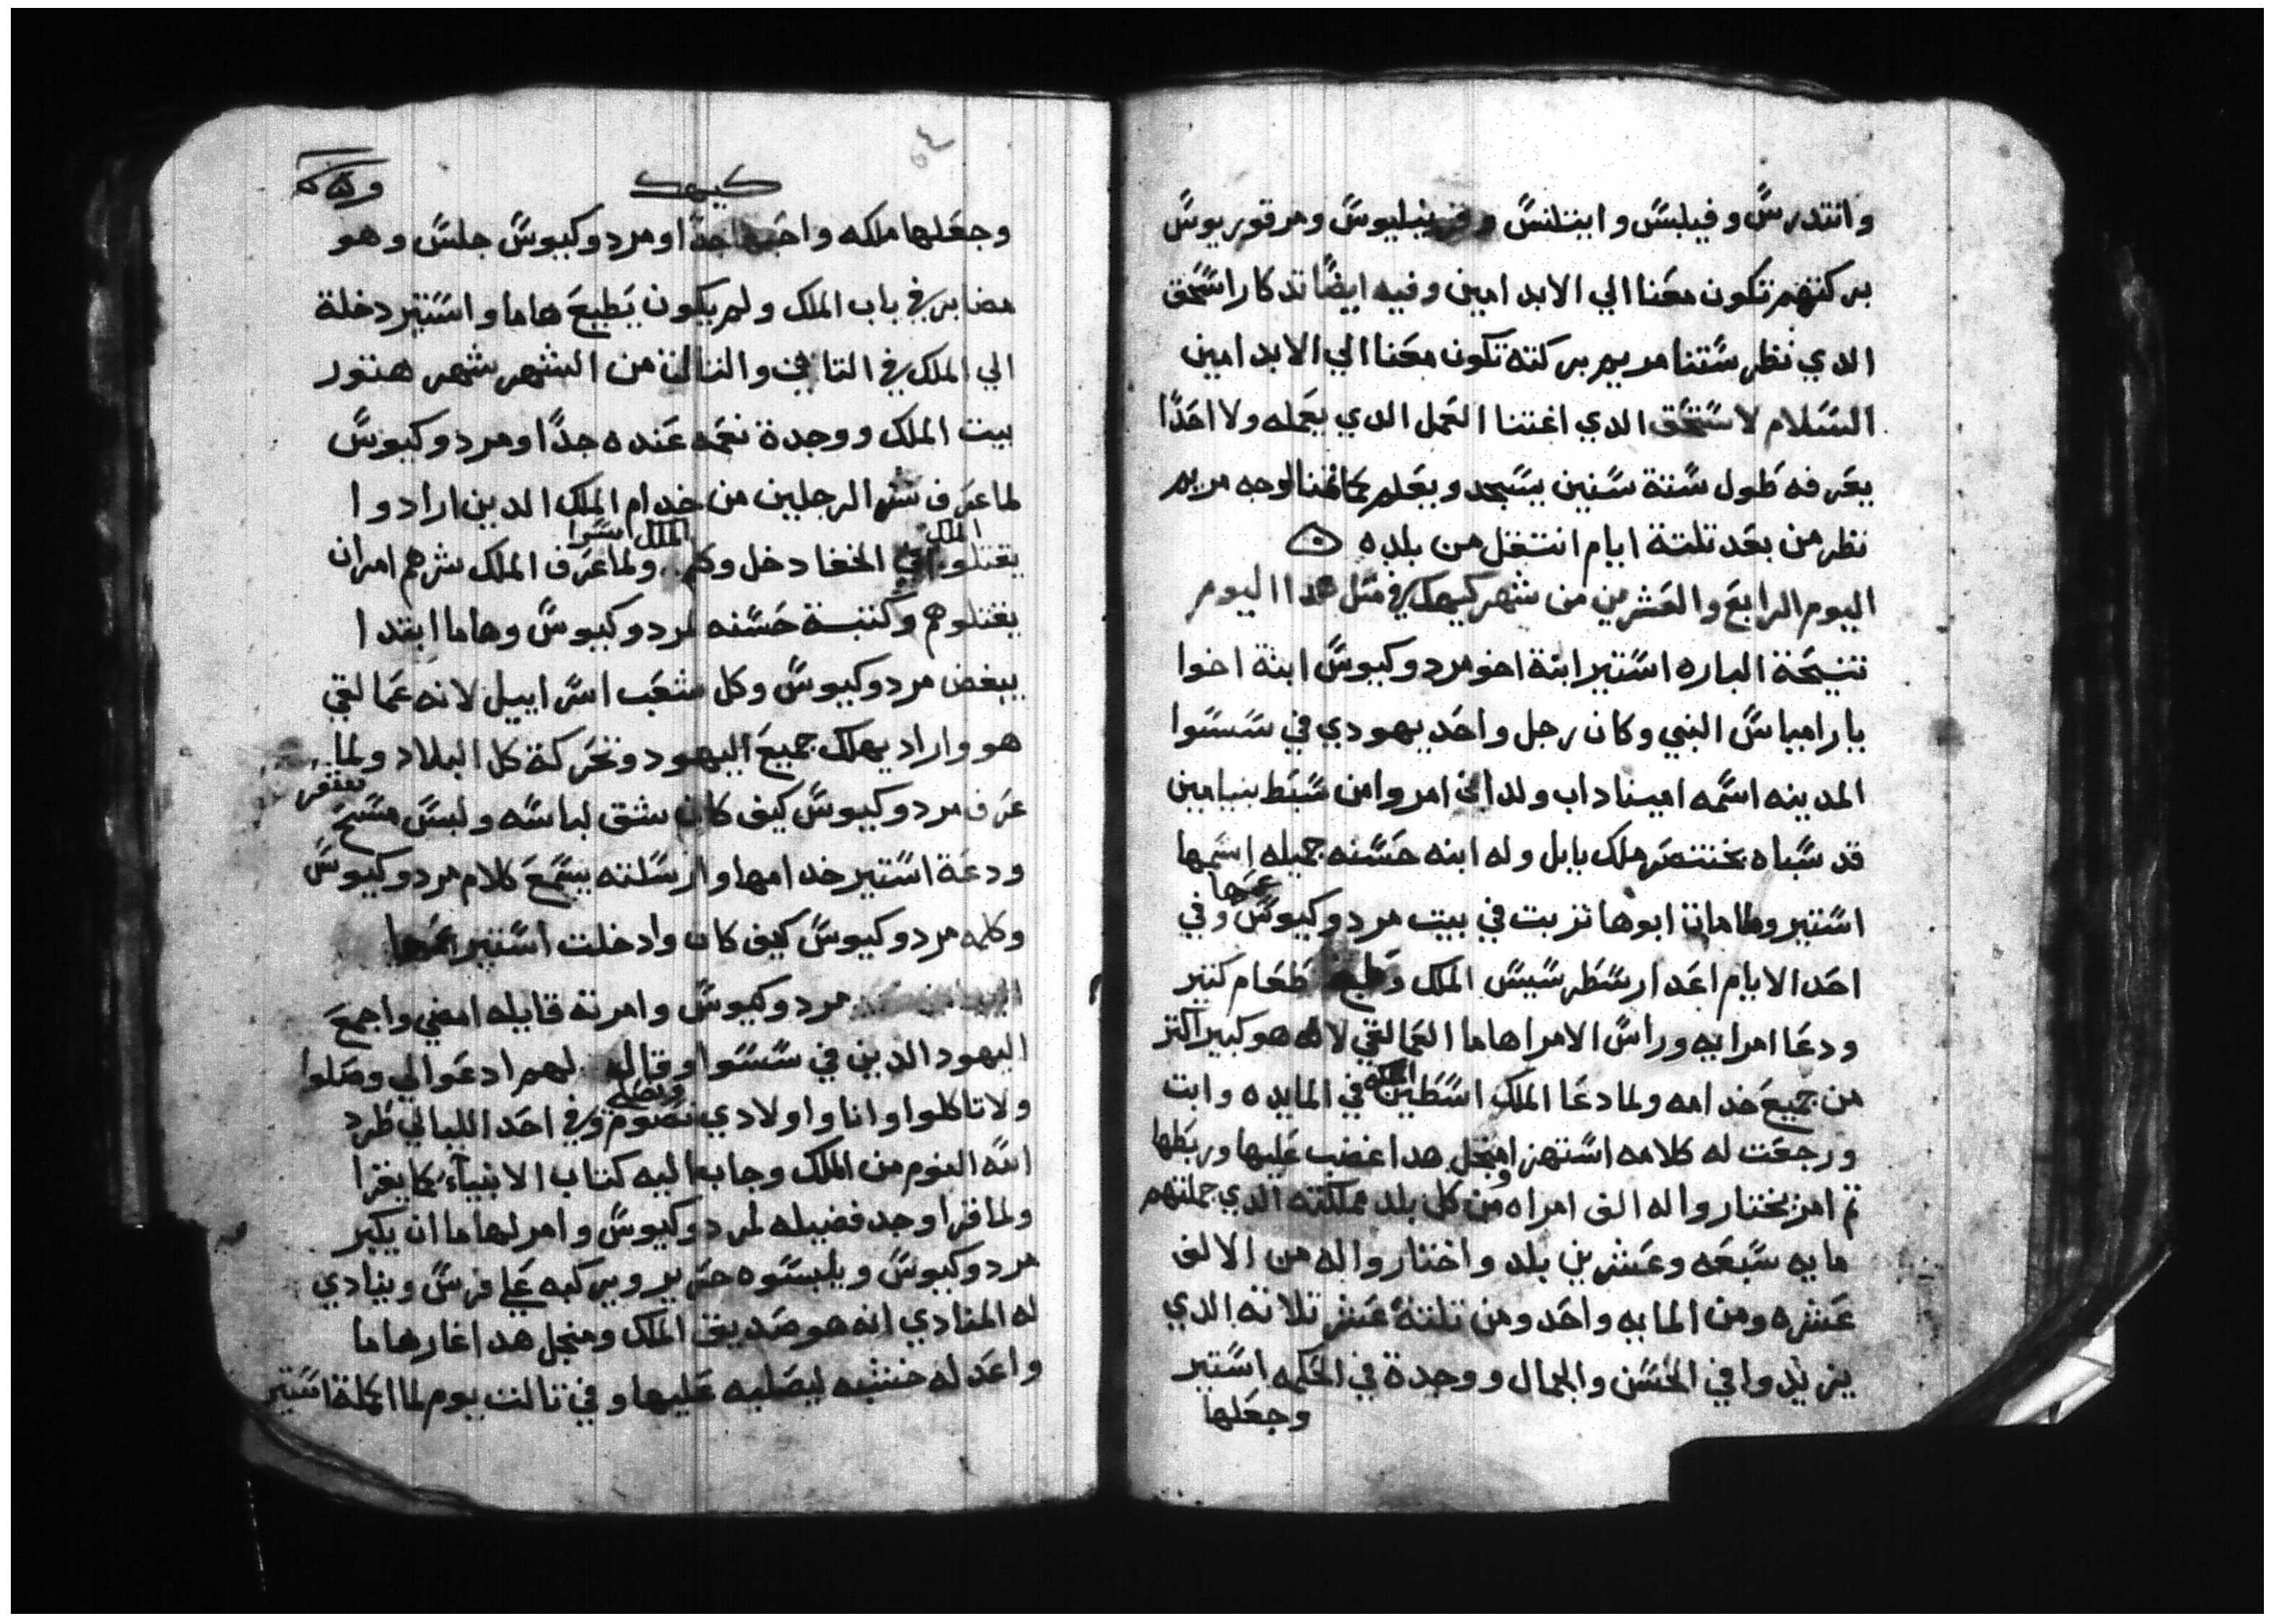 وانتدرس وفيلبس وابنتلنس وفرينليوس ومرقوريوس
بركتهم تكون معنا الي الابد امين وفيه ايضًا تدكار اسحق
الدي نظر ستنا مريم بركته تكون معنا الي الابد امين
السلام لاسحق الدي اغتنا العمل الدي يعمله ولا احدًا
يعرفه طول ستة سنين يسجد ويعلم لوجه مريم
نظر من بعد تلتة ايام انتقل من بلده
اليوم الرابع والعشرين من شهر كيهك في متل هدا اليوم
تنيحة الباره استير ابنة اخو مردوكيوس ابنة اخوا
بارامياس النبي وكان رجل واحد يهودي في سسوا
المدينه اسمه اميناداب ولد امروا من سبط بنيامين
قد سباه بختنصر ملك بابل وله ابنه حسنه جميله اسمها
استير ولما مات ابوها تربت في بيت مردوكيوس عمها وفي
احد الايام اعد ارسطرسيس الملك وطبخ طعام كتير
ودعا امرايه وراس الامرا هاما العمالقي لانه هو كبير اكتر
من جميع خدامه ولما دعا الملك اسطين الملكه في المايده وابت
ورجعت له كلامه استهزا ومنجل هدا غضب عليها وربطها
تم امر يختاروا له الف امراه من كل بلد مملكته الدي جملتهم
مايه سبعه وعشرين بلد واختاروا له من الالف
عشره ومن المايه واحد ومن تلتة عشر تلاته الدي
يزيدوا في الحسن والجمال ووجدة في الحكمه استير
وجعلها
كيهك
وجعلها ملكه واحبها جدًا ومردوكيوس جلس وهو
مضابر في باب الملك ولم يكون يطيع هاما واستير دخلة
الي الملك في التاني والتالت من الشهر شهر هتور
بيت الملك ووجدة نعمه عنده جدًا ومردوكيوس
لما عرف شر الرجلين من خدام الملك الدين ارادوا
يقتلوا الملك في الخفا دخل وكلم الملك استرا ولما عرف الملك شرهم امر ان
يقتلوهم وكتبة حسنه لمردوكيوس وهاما ابتدا
يبغض مردوكيوس وكل شعب اسراييل لانه عمالقي
هو واراد يهلك جميع اليهود وتحركة كل البلاد ولما
عرف مردوكيوس كيف كان شق لباسه ولبس مسح
ودعة استير خدامها وارسلته يسمع كلام مردوكيوس
وكلمه مردوكيوس كيف كان وادخلت استير عمها
مردوكيوس وامرته قايله امضي واجمع
اليهود الدين في سسوا وقال لهم ادعوا لي وصلوا
ولا تاكلوا وانا واولادي نصوم ونصلي وفي احد الليالي طرد
الله النوم من الملك وجابوا اليه كتاب الانبياء كما يقرا
ولما قرا وجد فضيله لمردوكيوس وامر لهاما ان يكبر
مردوكيوس ويلبسوه حرير ويركبه علي فرس وينادي
له المنادي انه هو صديق الملك ومنجل هدا غار هاما
واعد له خشبه ليصلبه عليها وفي تالت يوم لما الملكة استير